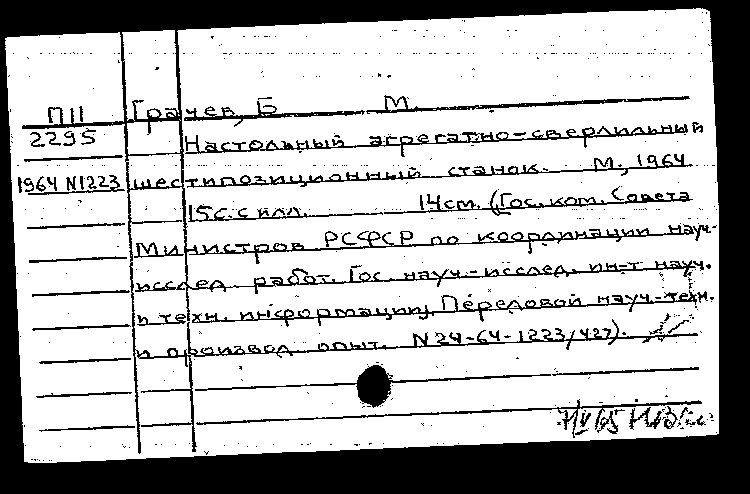 П11 Грачев, Б М.
2295 Настольный агрегатно-сверлильный
1964 N1223 шестипозиционный станок. М., 1964
15с. с илл. 14см. (Гос. ком. Совета
Министров РСФСР по координации науч.-
исслед. работ. Гос. науч.-исслед. ин-т науч.
и техн. информации. Передовой науч.-техн.
и производ. опыт. N24-64-1223/427).